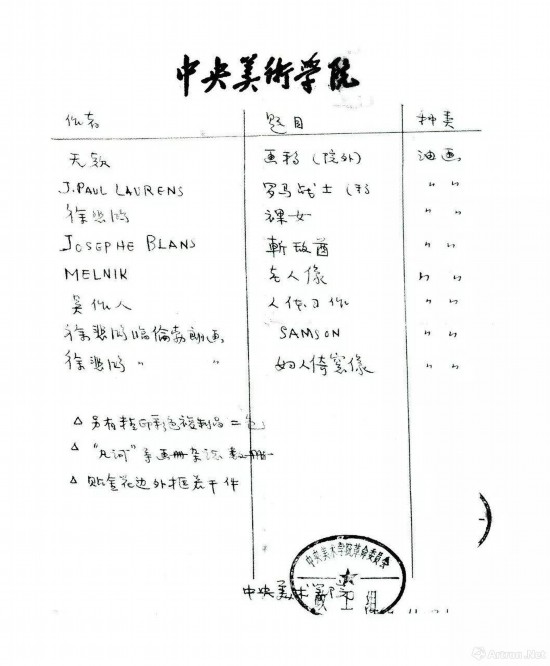 中央美術学院
作者 题目 种类
无款 画稿(院外) 油画
J. PAUL LAURENS 罗马战士(稿 〃 〃
徐悲鸿 裸女 〃 〃
JOSEPHE BLANS 斬敌酋 〃 〃
MELNIK 老人像 〃 〃
吴作人 人体习作 〃 〃
徐悲鸿临倫勃朗画 SAMSON 〃 〃
徐悲鸿 〃 〃 妇人倚窓像 〃 〃
△ 另有 印彩色複制品二包
△ "几河"等画册杂誌
△ 贴金花边外框若干件
中央美术学院革命委员会
中央美术学院
组
Artron.Net